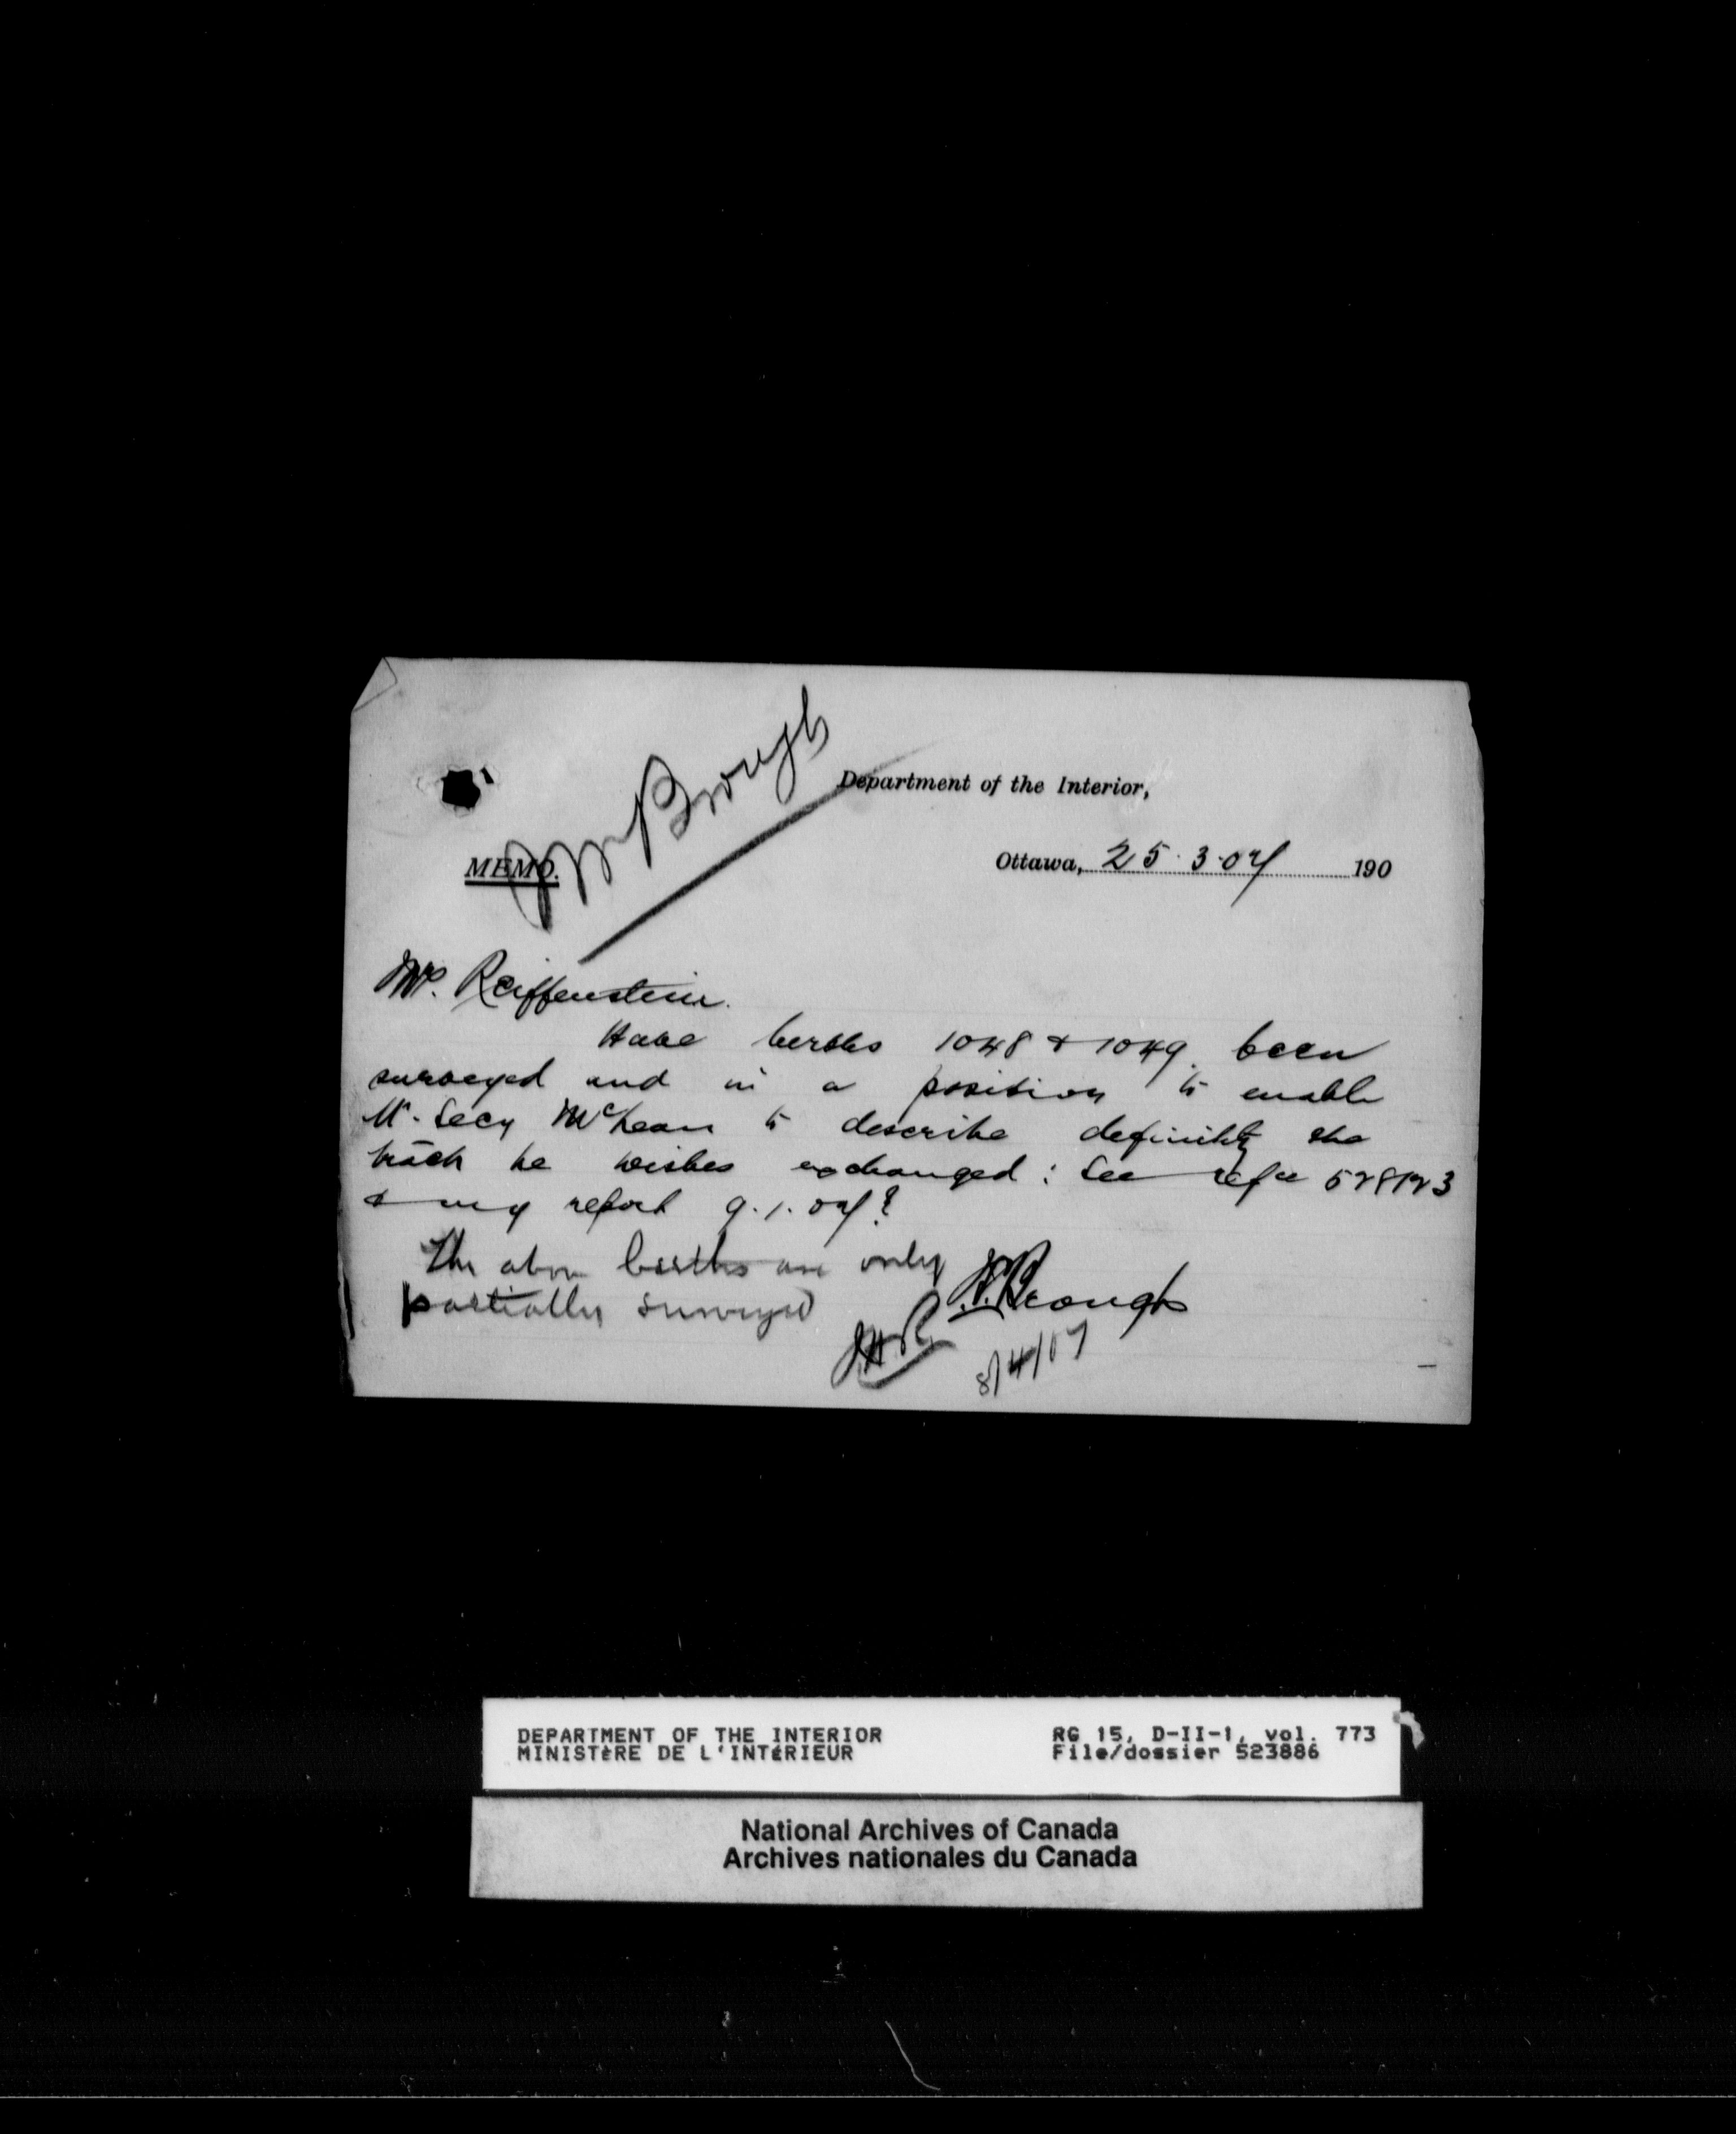 Mr Brough
Department of the Interior,
MEMO.
Ottawa, 25.3.07 190
Mr. Reiffenstein.
Have berths 1048 & 1049 been
surveyed and in a position to enable
Mr. Secy McLean to describe definitely the
tract he wishes exchanged: See refce 528123
& my report 9.1.07?
The above berths are only
partially surveyed
Brough
8/4/07
DEPARTMENT OF THE INTERIOR
MINISTÈRE DE L'INTÉRIEUR
RG 15, D-II-1, vol. 773
File/dossier 523886
National Archives of Canada
Archives nationales du Canada